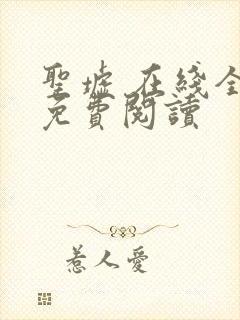 聖墟 在綫全
免費閱讀
惹人愛